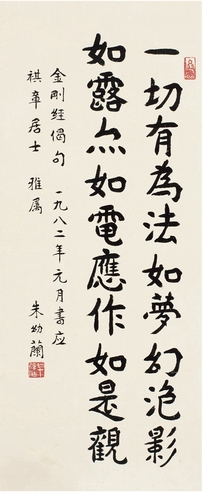 一切有為法如夢幻泡影
如露亦如電應作如是觀
金剛經偈句 一九八二年元月書应
祺章居士 雅属
朱幼蘭